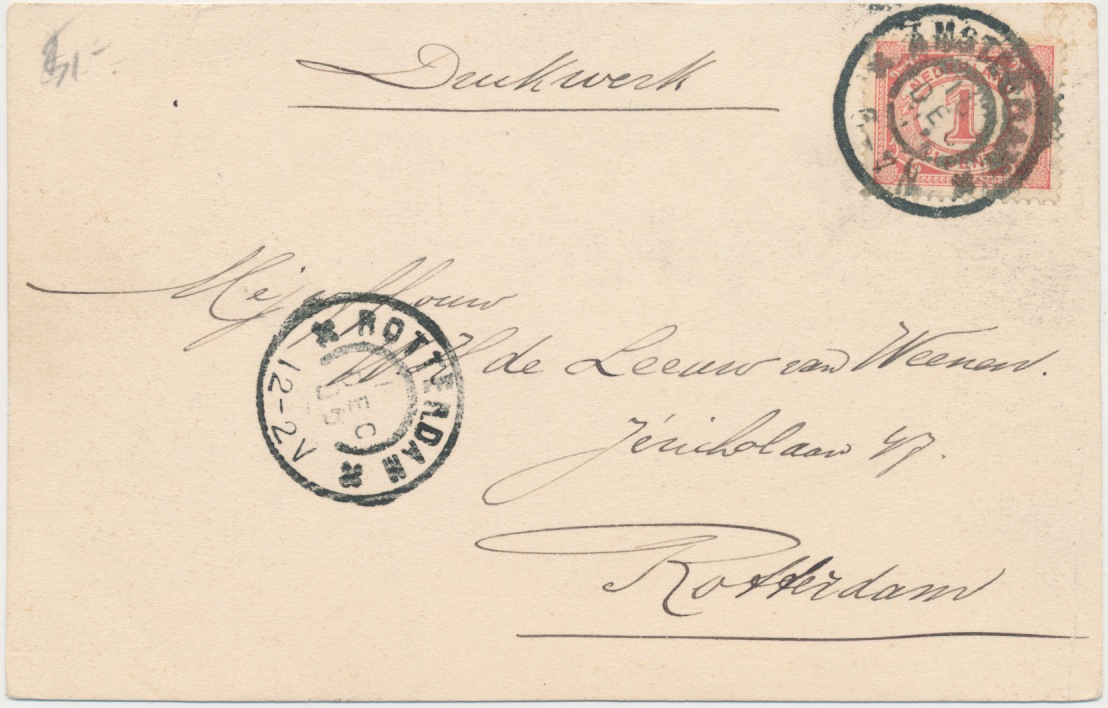 Drukwerk
NEDERLAND
1
CENT
AMSTERDAM
DEC
Mejuffrouw
H de Leeuw van Weenen.
Jéricholaan 47.
Rotterdam
ROTTERDAM
DEC
05
12-2V